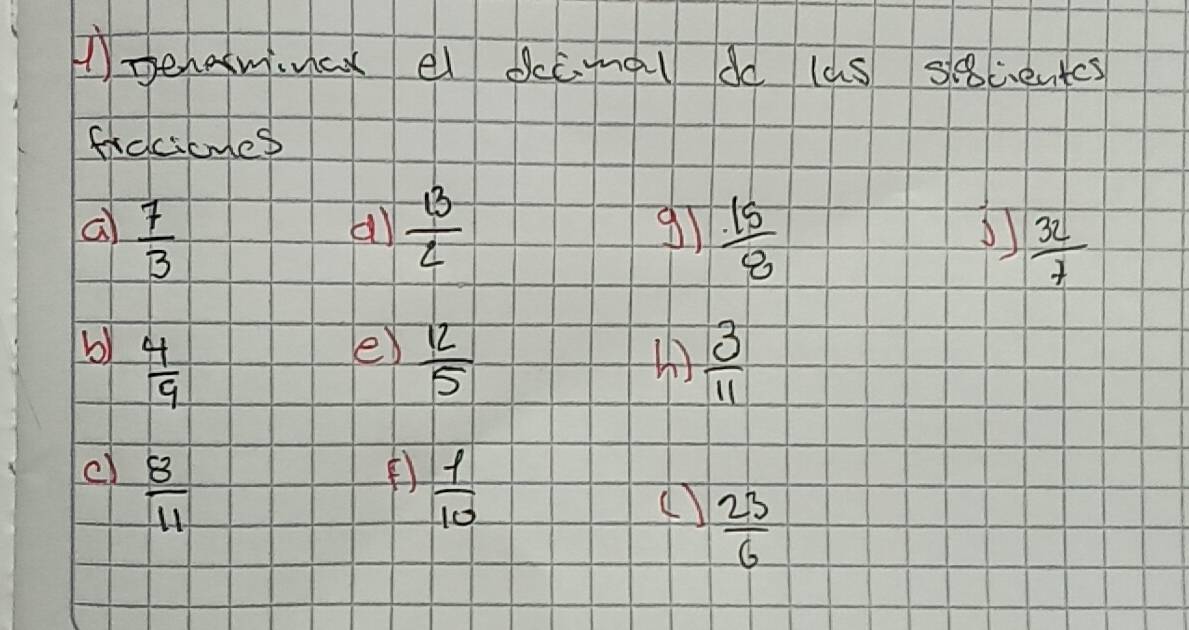 1) Denarminar el decimal de las siguientes
fracciones
a) 7/3 d) 13/2 g) 15/8 j) 32/7
b) 4/9 e) 12/5 h) 3/11
c) 8/11 f) 1/10 i) 23/6